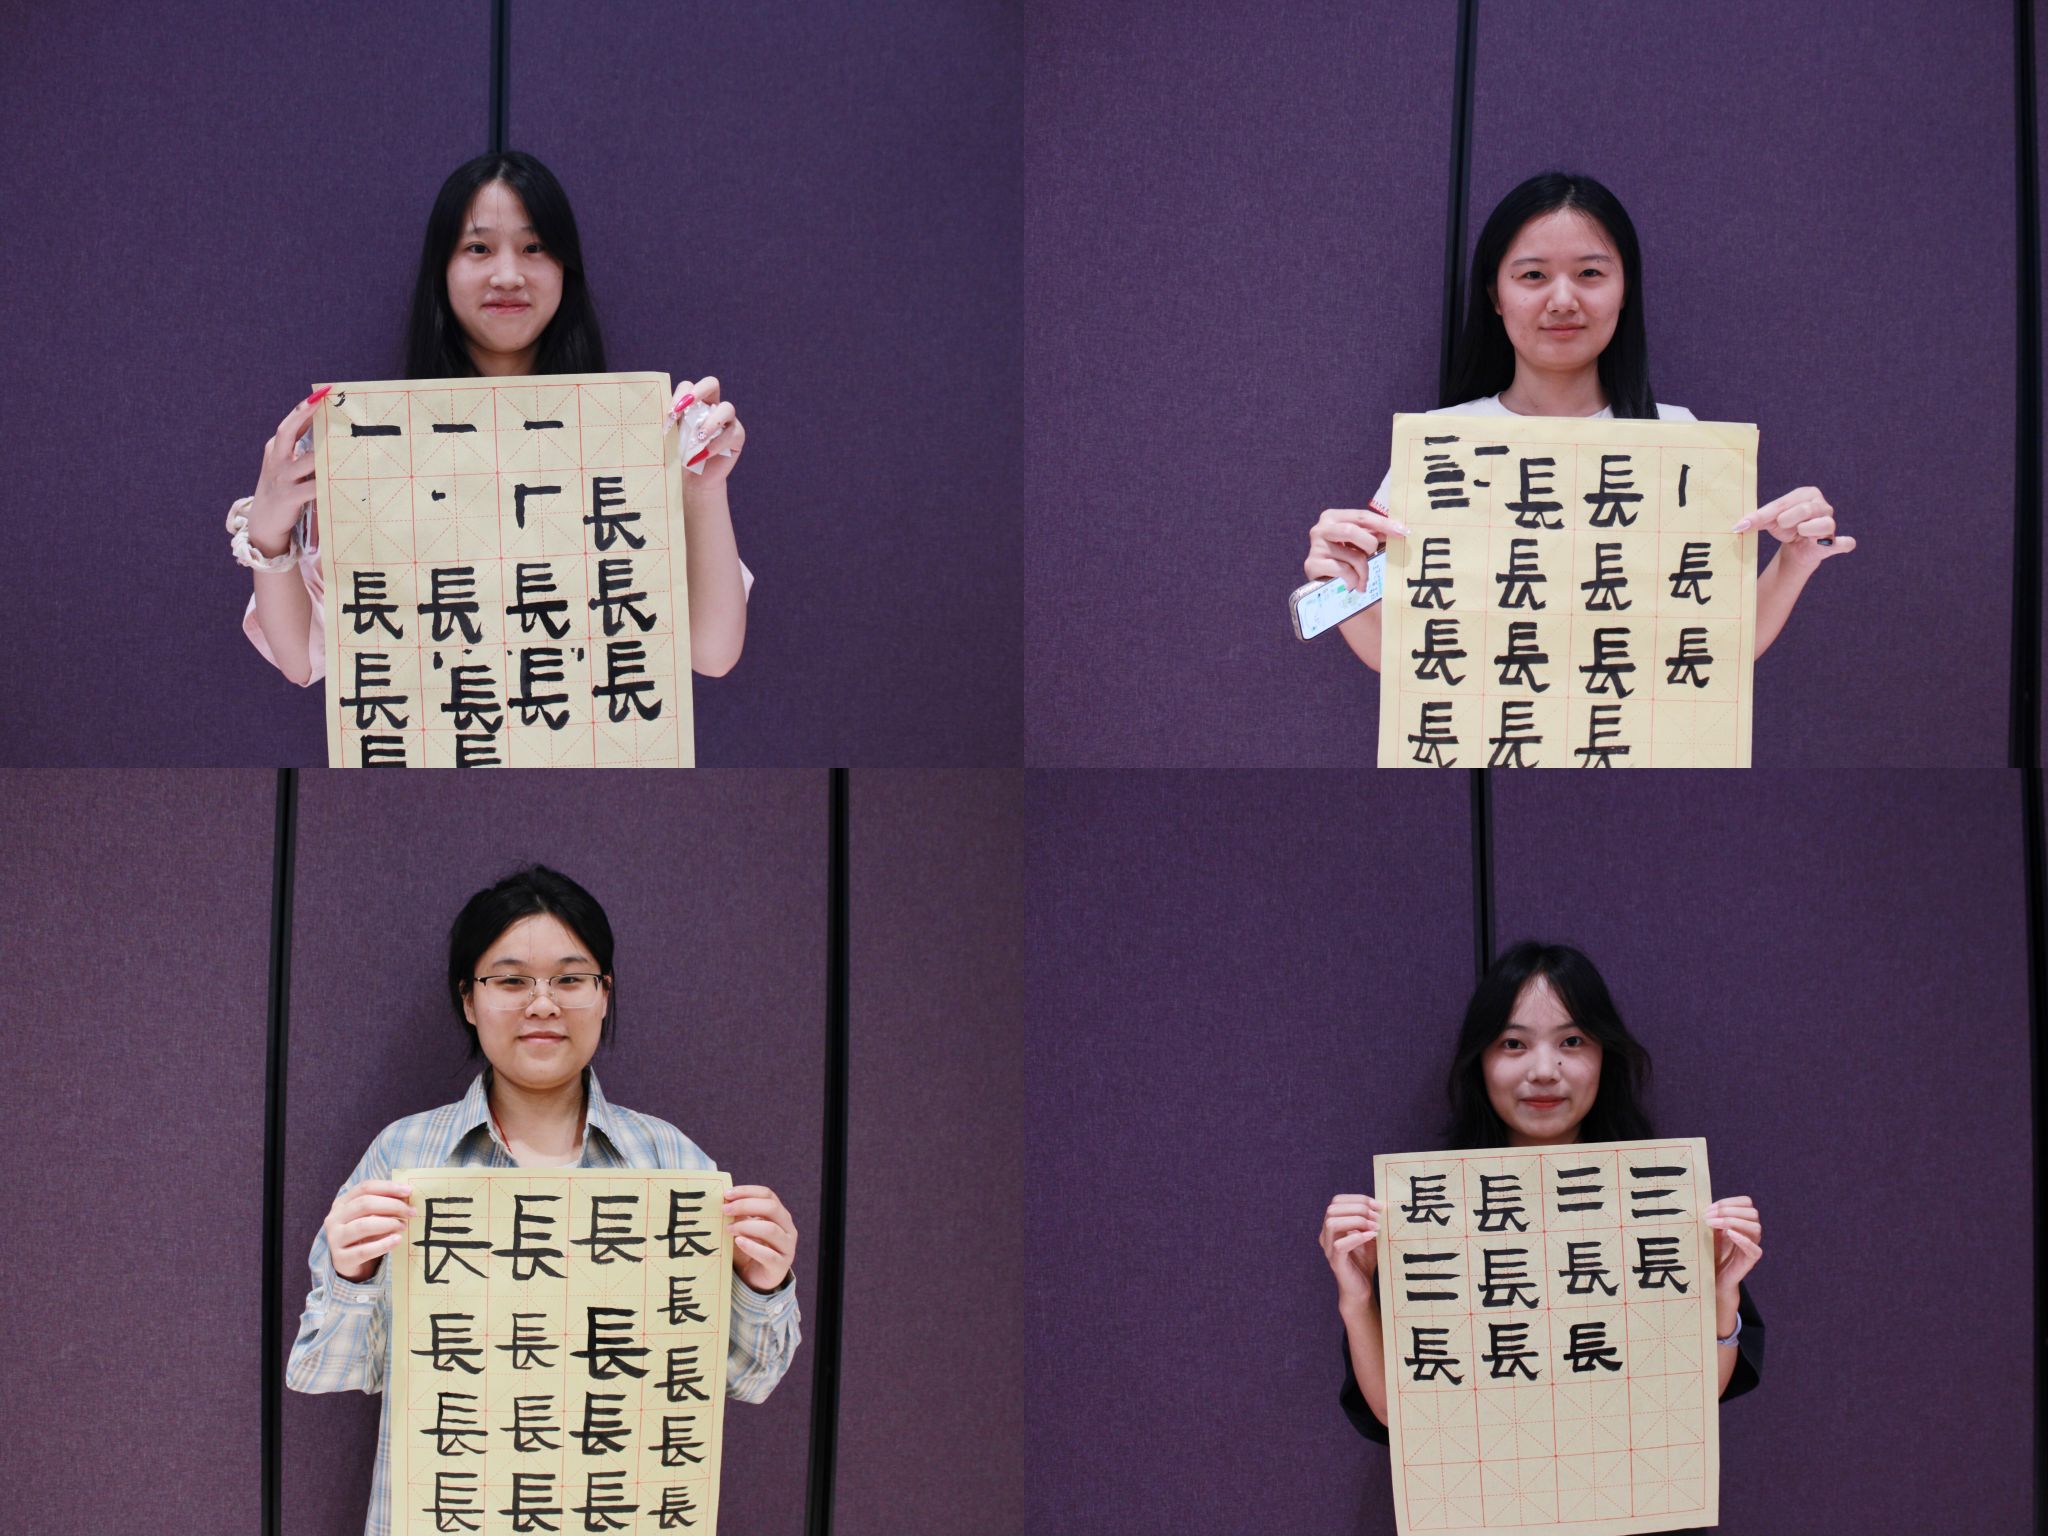 一 一 一
長
長 長 長 長
長 長 長 長
長 長
長 長
長 長 長 長
長 長 長 長
長 長 長
長 長 長 長
長
長 長 長 長
長 長 長 長
長 長 長 長
長 長 三 三
三 長 長 長
長 長 長